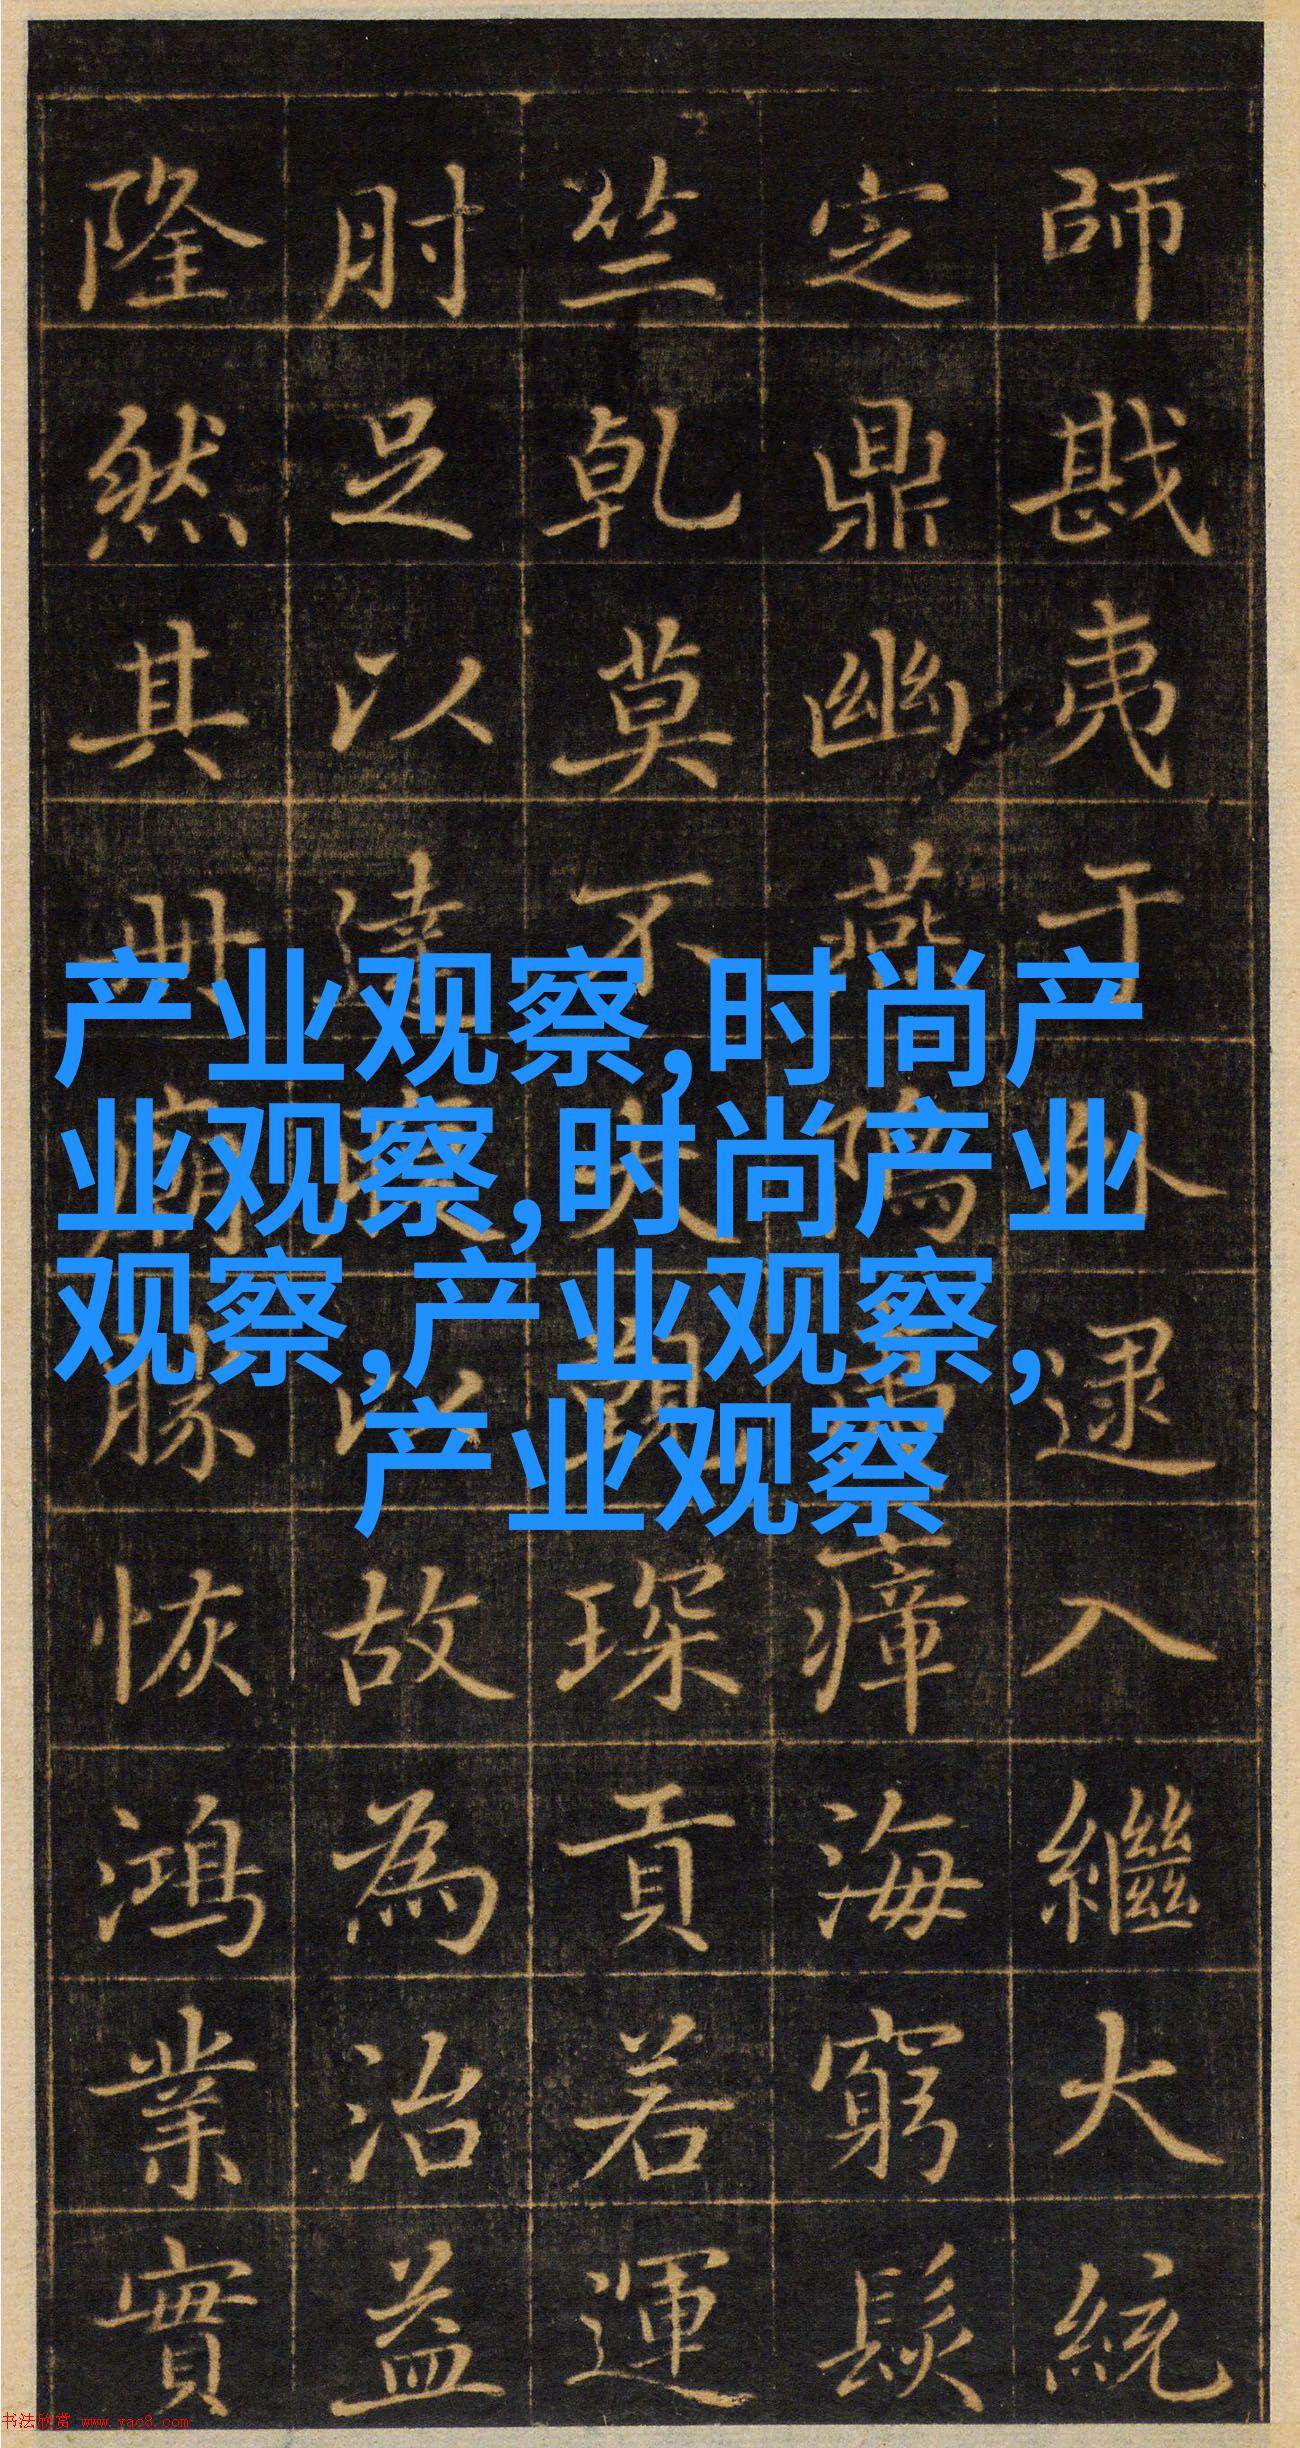 師戡夷于外逮入繼大統
定鼎幽燕瘴海窮髮
竺乾莫不琛貢若運
肘足以達以故為治益
隆然其廟勝恢鴻業實
产业观察,时尚产
业观察,时尚产业
观察,产业观察,
产业观察
书法欣赏 www.yac8.com